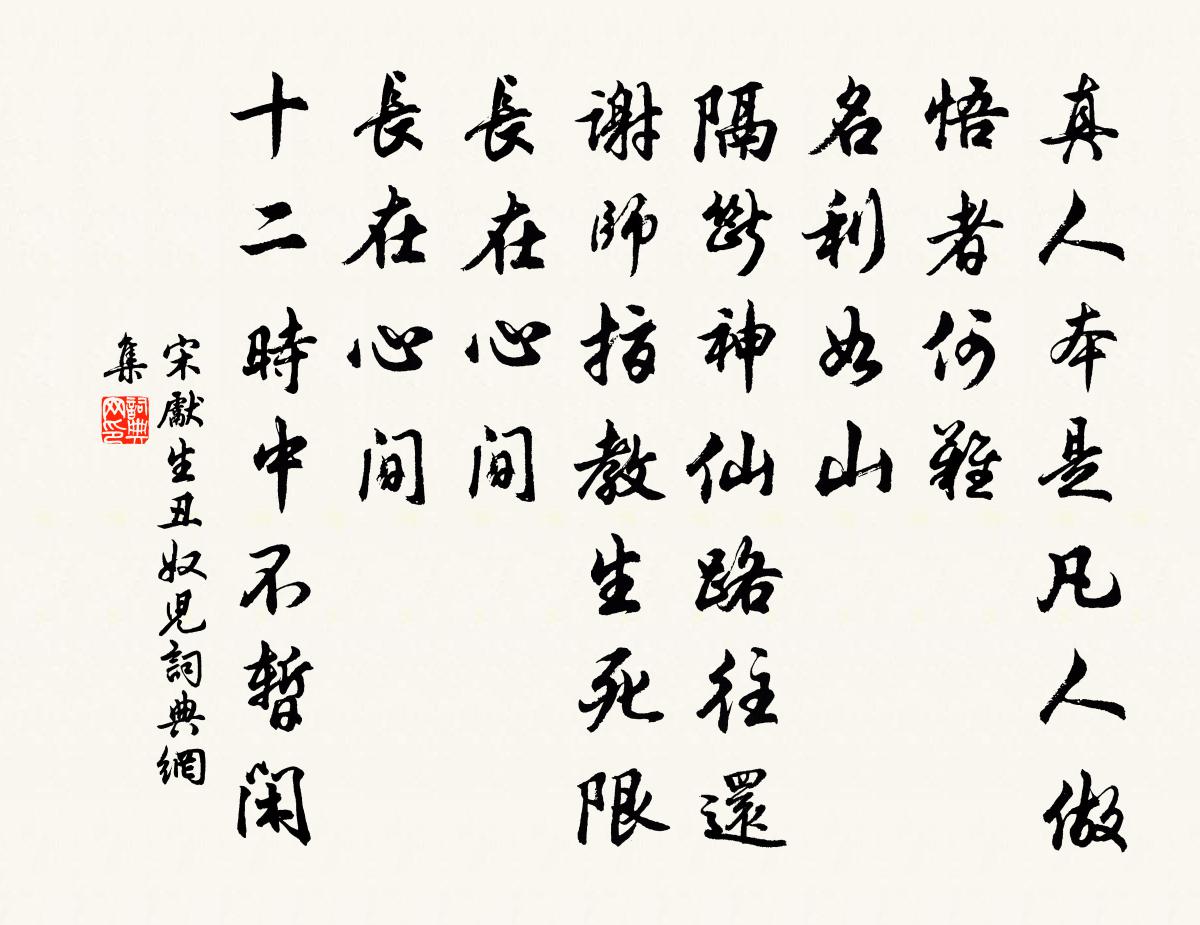 真人本是凡人做
悟者何難
名利如山
隔斷神仙路往還
謝師指教生死限
長在心間
長在心間
十二時中不暫閑
宋獻生丑奴兒詞典網
集
詞典網印